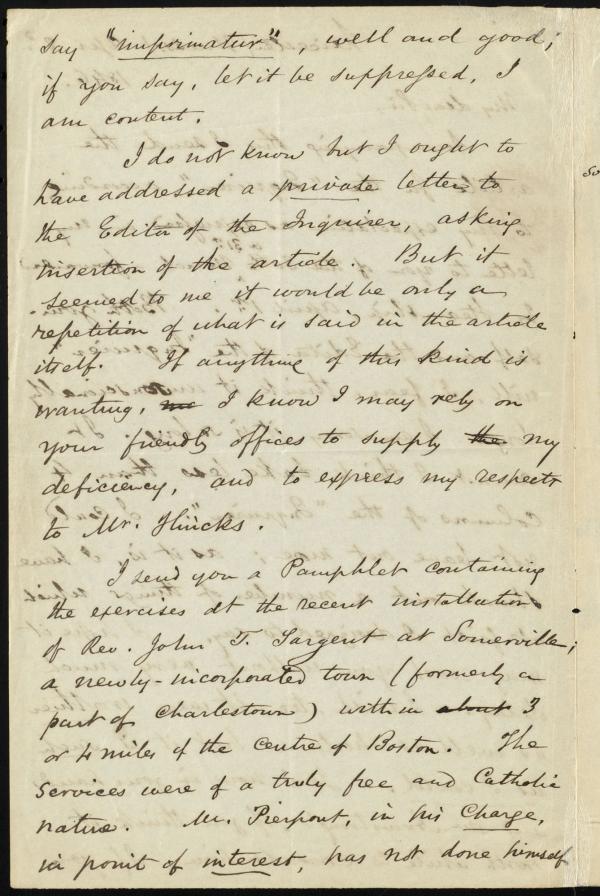 say "imprimatur", well and good;
if you say, let it be suppressed, I
am content.
I do not know but I ought to
have addressed a private letter to
the Editor of the Inquirer, asking
insertion of the article. But it
seemed to me it would be only a
repetition of what is said in the article
itself. If anything of this kind is
wanting, me I know I may rely on
your friendly offices to supply the my
deficiency, and to express my respects
to Mr. Hincks.
I send you a Pamphlet containing
the exercises at the recent installation
of Rev. John T. Sargent at Somerville;
a newly-incorporated town (formerly a
part of Charlestown) within about 3
or 4 miles of the centre of Boston. The
services were of a truly free and Catholic
nature. Mr. Pierpont, in his Charge,
in point of interest, has not done himself
So